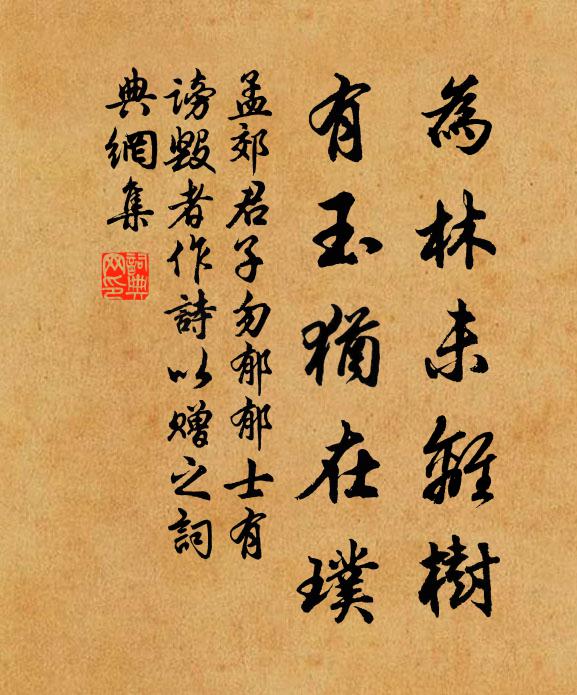 為林未離樹
有玉猶在璞
孟郊君子勿郁郁士有
謗毀者作詩以贈之詞
典網集
詞典網印